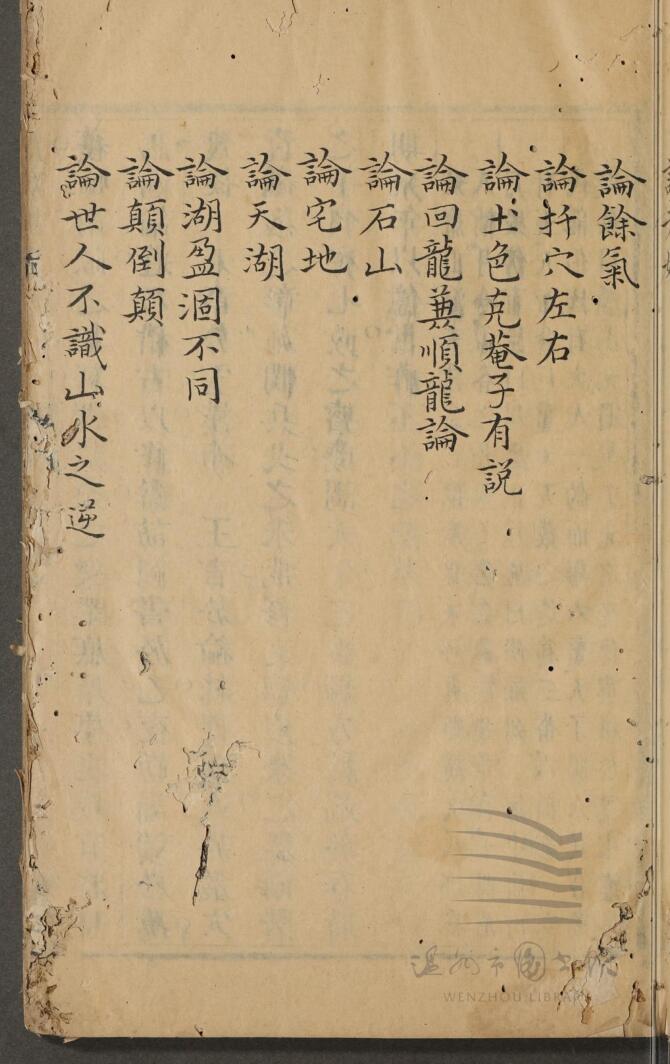 論餘氣
論扦穴左右
論土色克菴子有説
論回龍兼順龍論
論石山
論宅地
論天湖
論湖盈涸不同
論顛倒顛
論世人不識山水之逆
温州市图书馆
WENZHOU LIBRARY